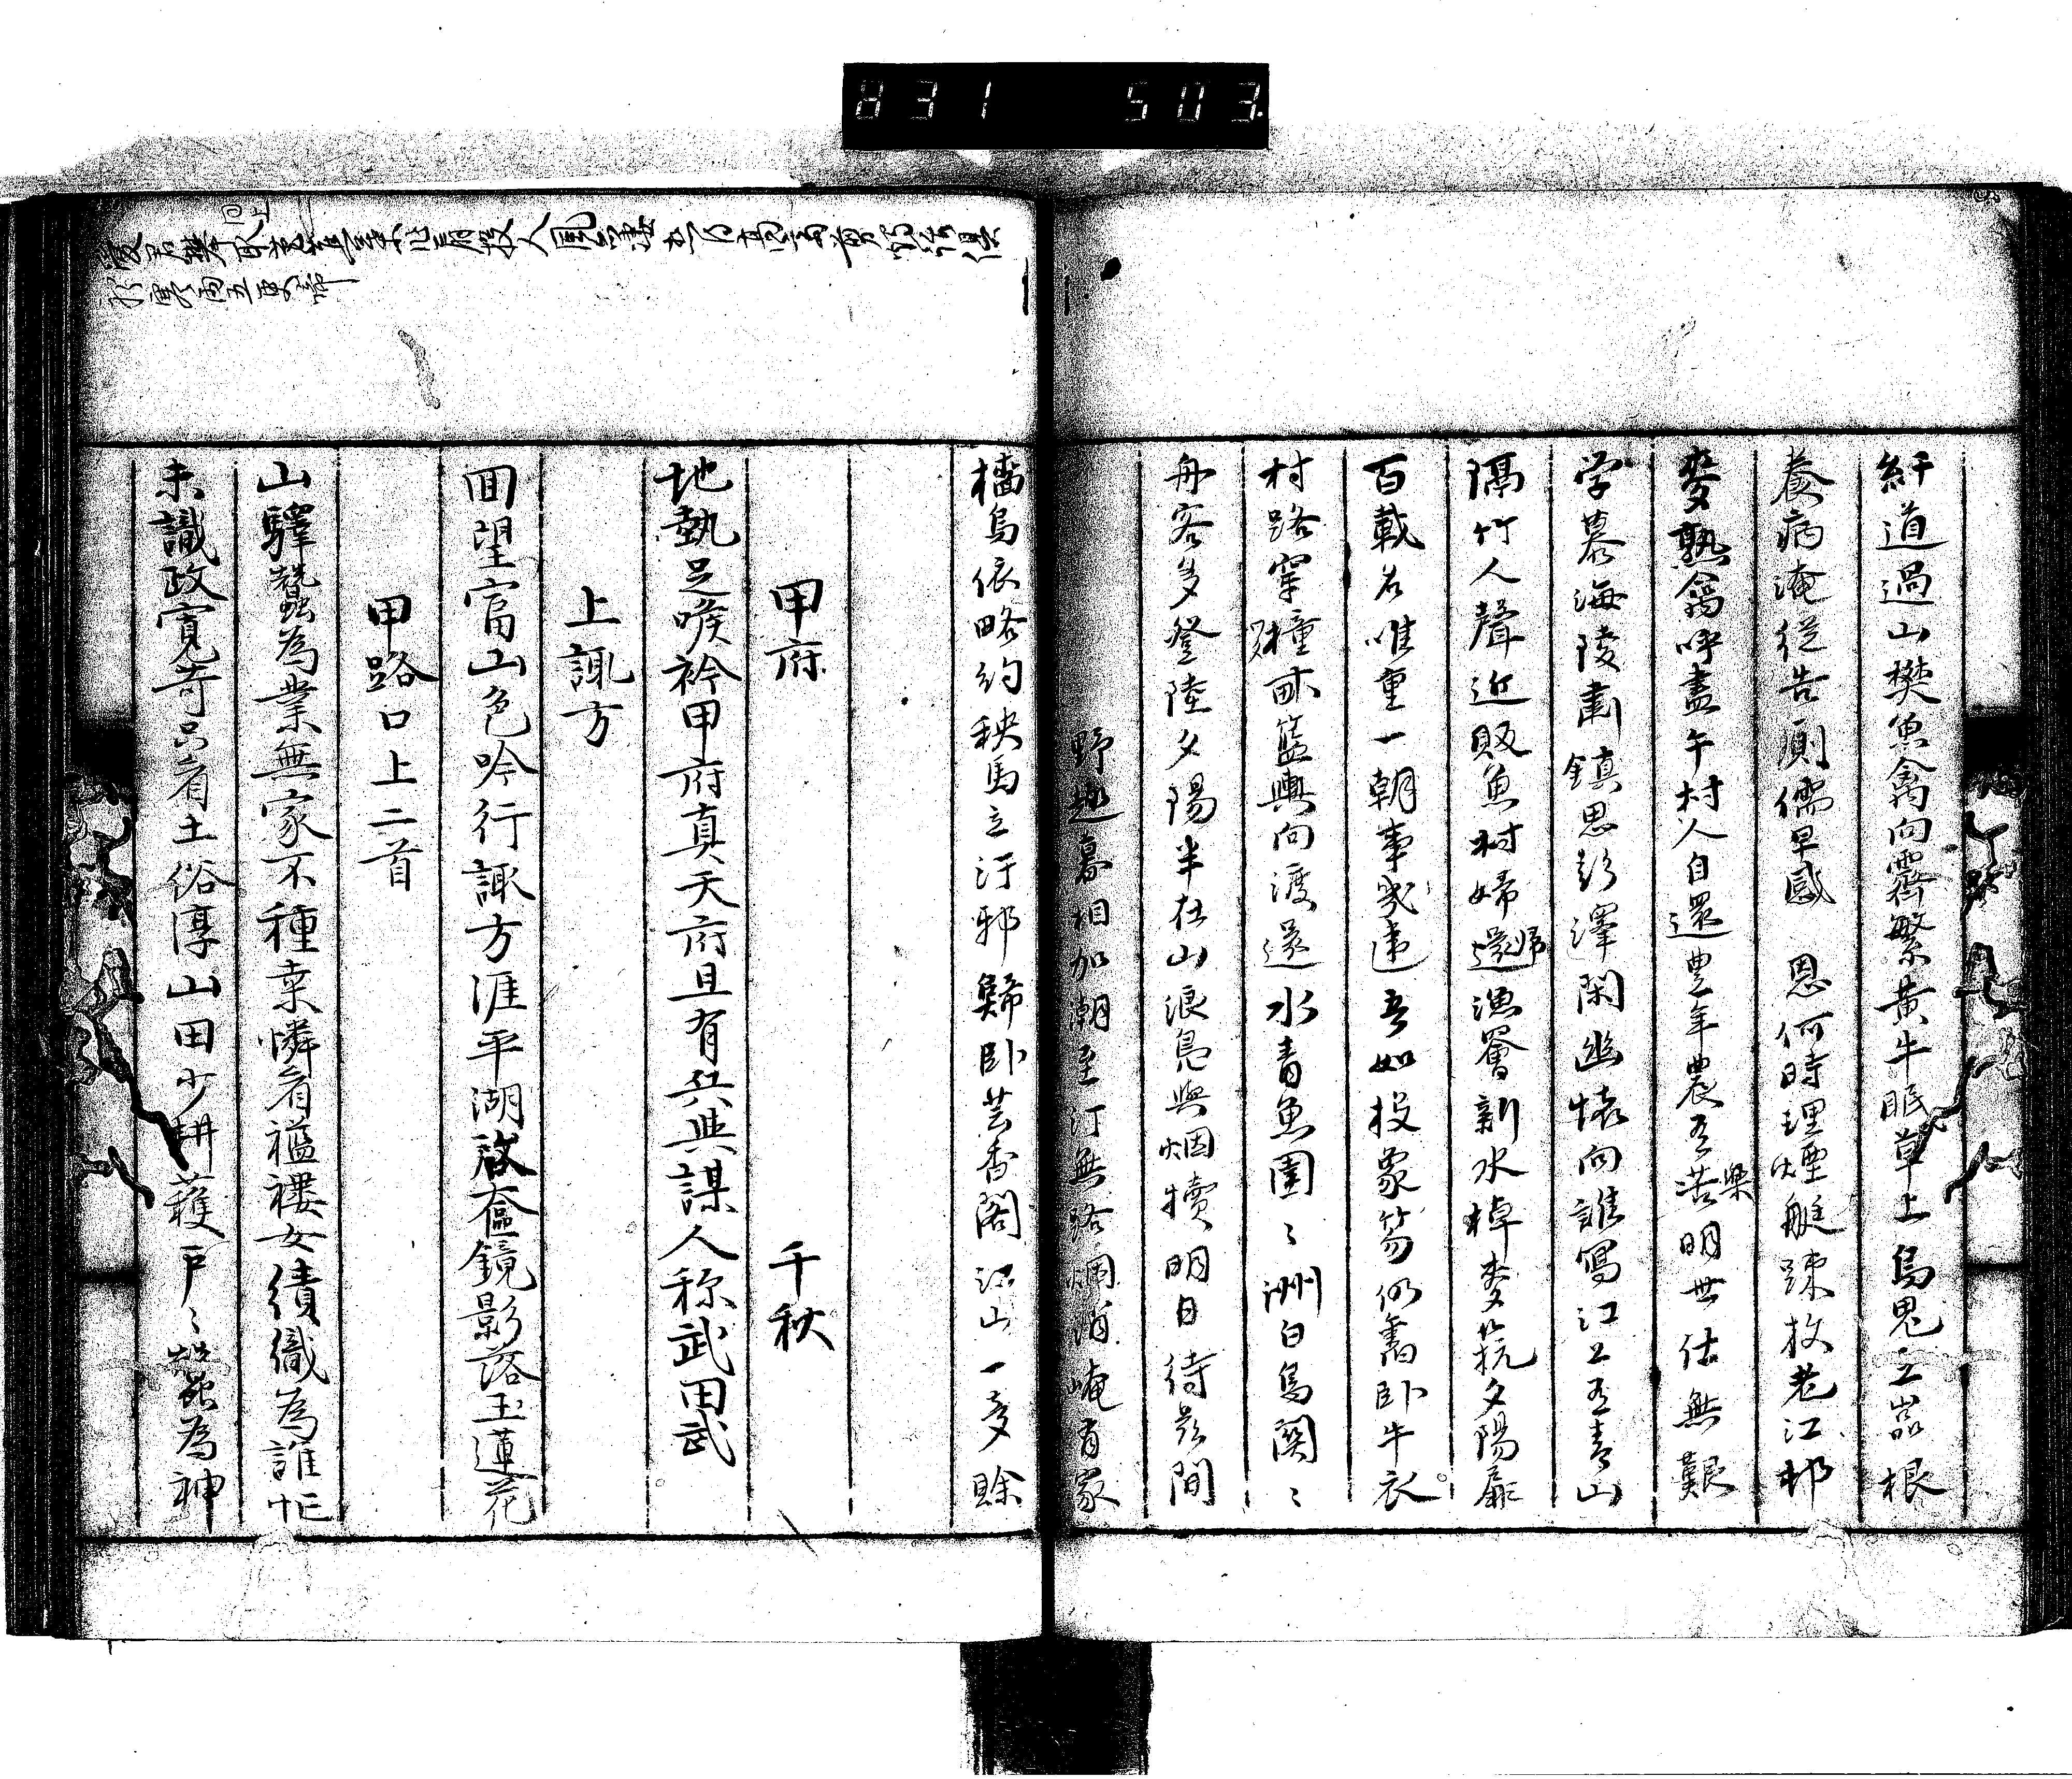 831 503
紆道過山樊魚禽向霽繁黄牛眠草上烏鬼立岩根
養病淹從告厠儒早感 恩何時理煙艇踈放老江邨
麥熟禽呼盡午村人自還豊年農有苦樂明世仕無艱
学慕海陵劃鎮思彭澤閑幽懐向誰寫江上有青山
隔竹人聲近販魚村婦還歸漁罾新水棹麥夕陽
百載名唯重一朝事我違吾如投象笏仍舊卧牛衣
村路穿種畎籃輿向渡還水青魚圉〻洲白鳥関〻
舟客多登陸夕陽半在山浪鳧與烟犢明日待間
野趣暮相加潮至汀無路烟消崦有家
檣烏依略約秧馬立汙邪歸卧芸香閣江山一夢賖
甲府 千秋
地勢足喉衿甲府真天府且有兵與謀人称武田武
上諏方
回望富山色吟行諏方涯平湖啓奩鏡影落玉蓮花
甲路口上二首
山驛蠶為業無家不種桒憐看襤褸女績織為誰忙
未識政寛苛只看土俗淳山田少耕穫戸〻蠶為神